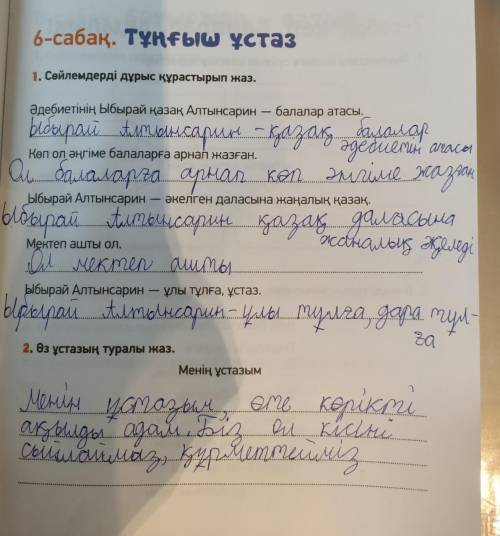 6-сабақ. Тұңғыш ұстаз
1. Сөйлемдерді дұрыс құрастырып жаз.
Әдебиетінің Ыбырай қазақ Алтынсарин — балалар атасы.
Ыбырай Алтынсарин - қазақ балалар
әдебиетін атасы
Көп ол әңгіме балаларға арнап жазған.
Ол балаларға арнап көп әнгіме жазған
Ыбырай Алтынсарин — әкелген даласына жаңалық қазақ.
Ыбырай Алтынсарин қазақ даласына
жаналық әкеледі
Мектеп ашты ол.
Ол мектеп ашты
Ыбырай Алтынсарин — ұлы тұлға, ұстаз.
Ыбырай Алтынсарин - ұлы тұлға, дара тұл-
ға
2. Өз ұстазың туралы жаз.
Менің ұстазым
Менін ұстазым өте көрікті
ақылды адам. Біз ол кісіні
сыйлаймаз, құрметтейміз